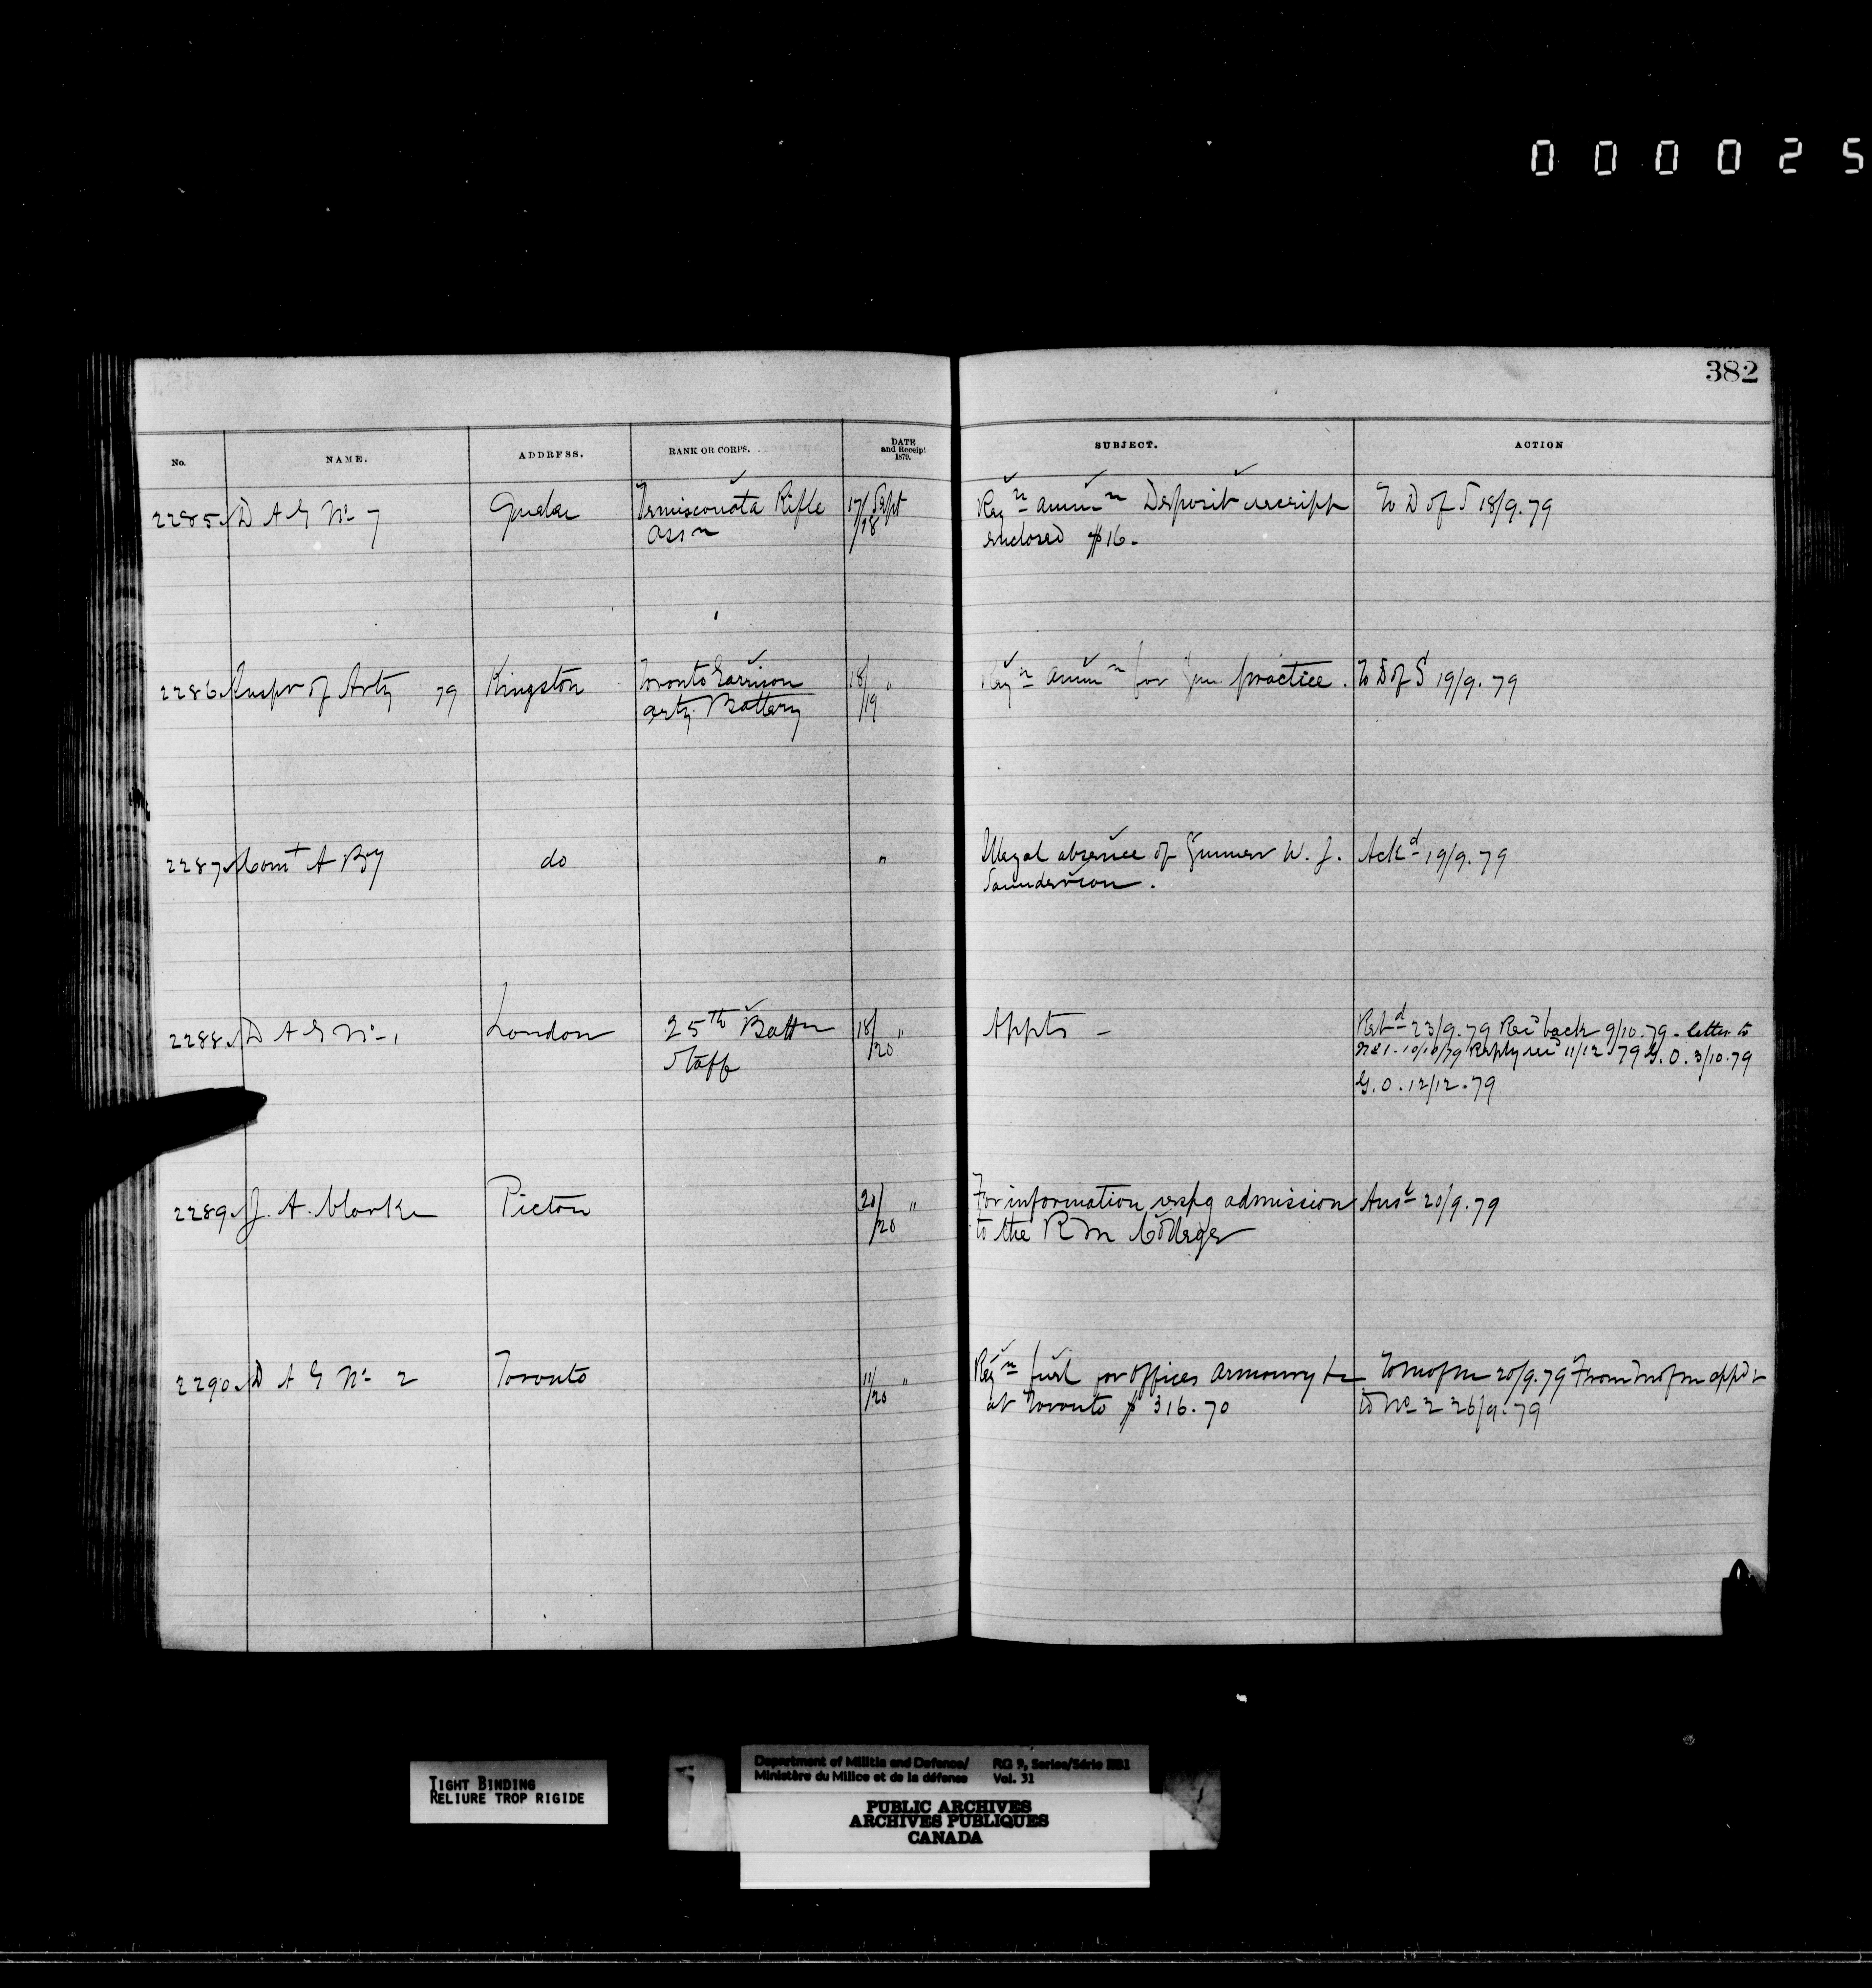 000025
382
No. NAME. ADDRESS. RANK OR CORPS. DATE and Receipt 1879. SUBJECT. ACTION
2285 D A G No 7 Quebec Temiscouata Rifle 17/18 Sept Reqn ammn Deposit receipt To D of S 18/9.79
Assn enclosed $16.
2286 Inspr of Arty 79 Kingston Toronto Garrison 18/19 " Reqn ammn for Gun practice. To D of S 19/9.79
Arty Battery
2287 Comt A By do " Illegal absence of Gunner W. J. Ackd 19/9.79
Saunderson.
2288 D A G No 1 London 25th Battn 18/20 " Appts - Retd 23/9.79 Recd back 9/10.79 - letter to
Staff No 1. 10/10/79 Reply recd 11/12.79 G.O. 3/10.79
G.O. 12/12.79
2289 J. A. Clarke Picton 20/20 " For information respg admission Ansd 20/9.79
to the R M College
2290 D A G No 2 Toronto 11/20 " Reqn fuel for Offices Armoury &c To M of M 20/9.79 From M of M appd &
at Toronto $316.70 to No 2 26/9.79
TIGHT BINDING
RELIURE TROP RIGIDE
Department of Militia and Defence/ RG 9, Series/Série IIB1
Ministère du Milice et de la défense Vol. 31
PUBLIC ARCHIVES
ARCHIVES PUBLIQUES
CANADA